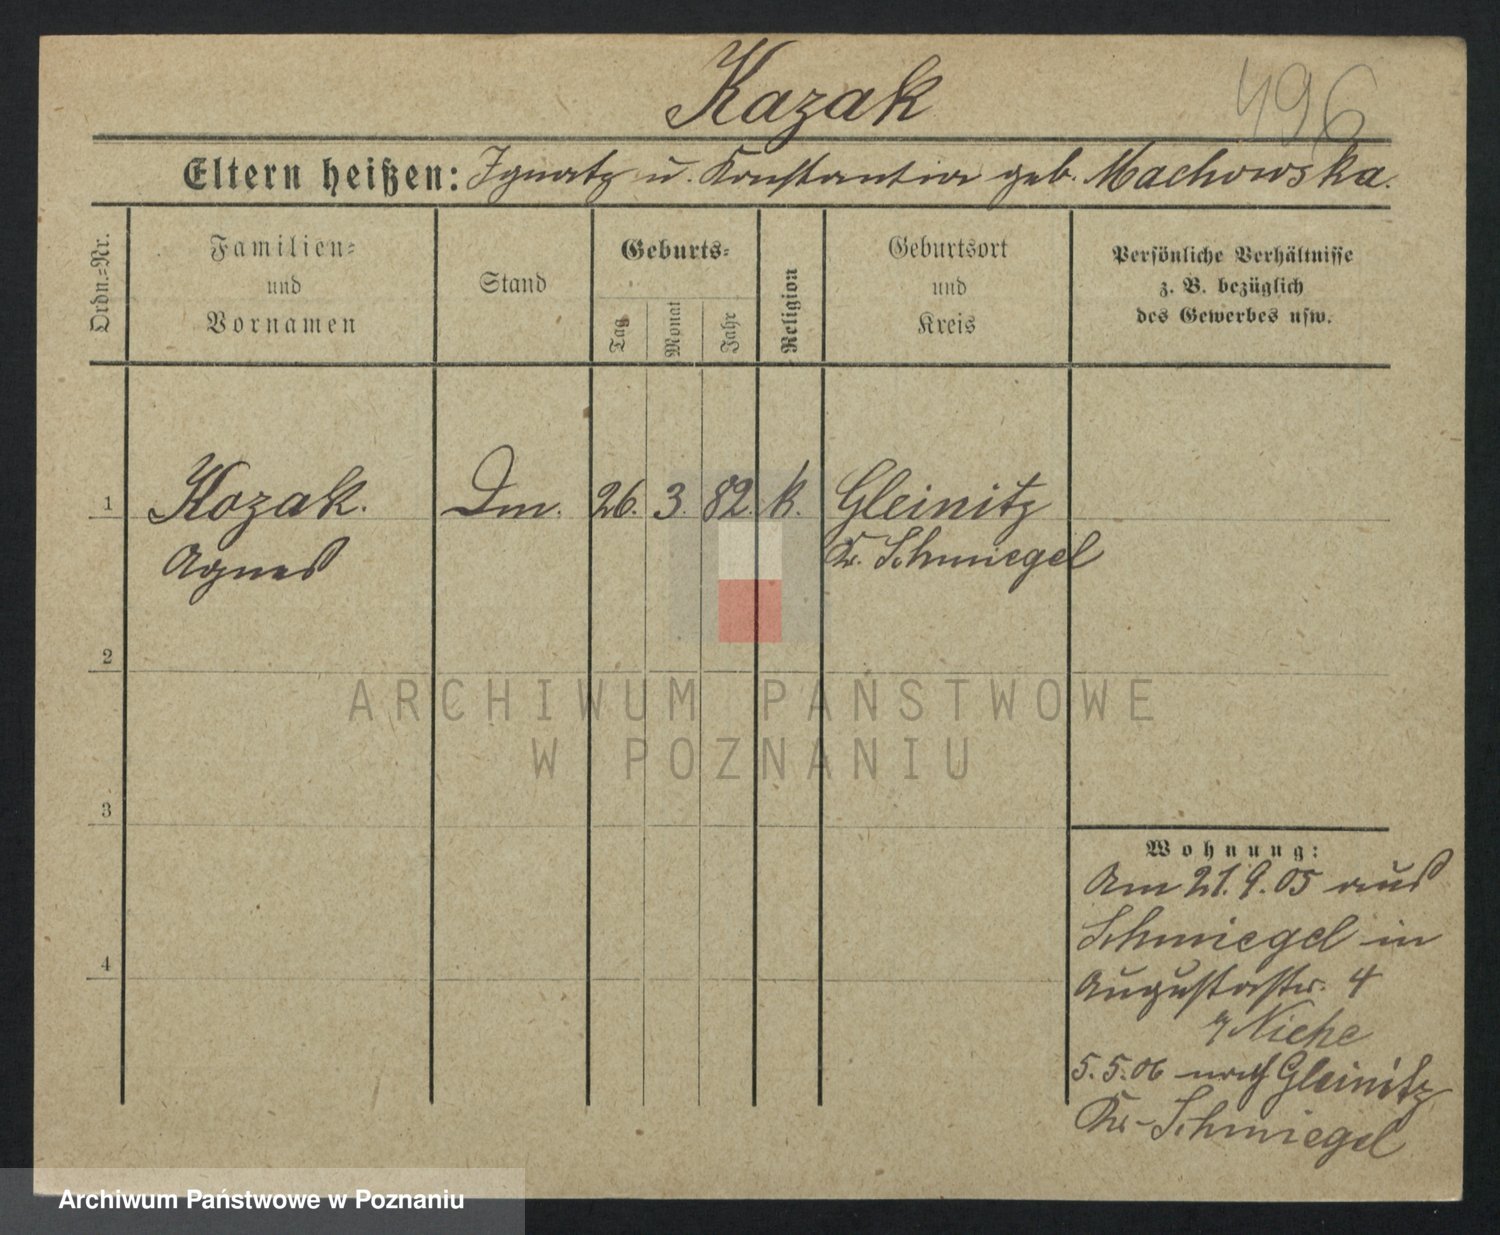 Kazak
496
Eltern heißen: Ignatz u. Konstantia geb. Machowska.
Ordn.-Nr.
Familien-
und
Vornamen
Stand
Geburts-
Tag
Monat
Jahr
Religion
Geburtsort
und
Kreis
Persönliche Verhältnisse
z. B. bezüglich
des Gewerbes usw.
1 Kozak. Dm. 26. 3. 82. k. Gleinitz
Agnes Kr. Schmiegel
2
3
4
Wohnung:
Am 21. 9. 05 aus
Schmiegel in
Augustastr. 4
5. 5. 06 nach Gleinitz
Kr. Schmiegel
ARCHIWUM PAŃSTWOWE
W POZNANIU
Archiwum Państwowe w Poznaniu